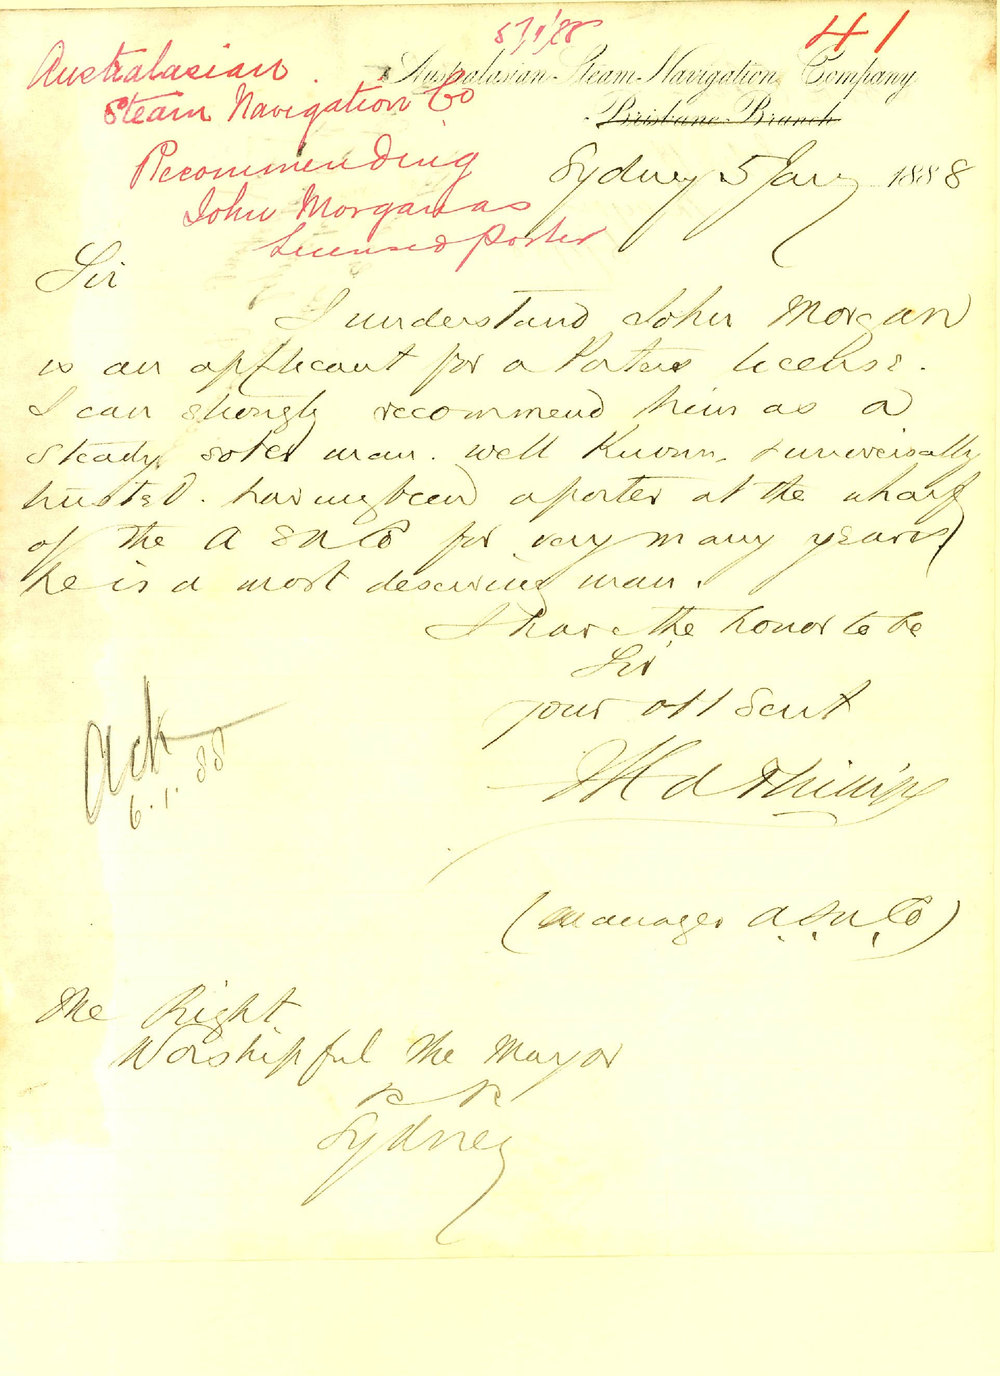 5/1/88
41
Australasian
Steam Navigation Co
Recommending
John Morgan as
Licensed Porter
Australasian Steam Navigation Company
Brisbane Branch
Sydney 5 Jany 1888
Sir
I understand John Morgan
is an applicant for a Porters license.
I can strongly recommend him as a
steady, sober man. well known, & universally
trusted. having been a porter at the wharf
of the A S N Co for very many years
he is a most deserving man.
I have the honor to be
Sir
your obt Servt
Phillips
(Manager A.S.N. Co)
Ack
6.1.88
The Right
Worshipful the Mayor
Sydney